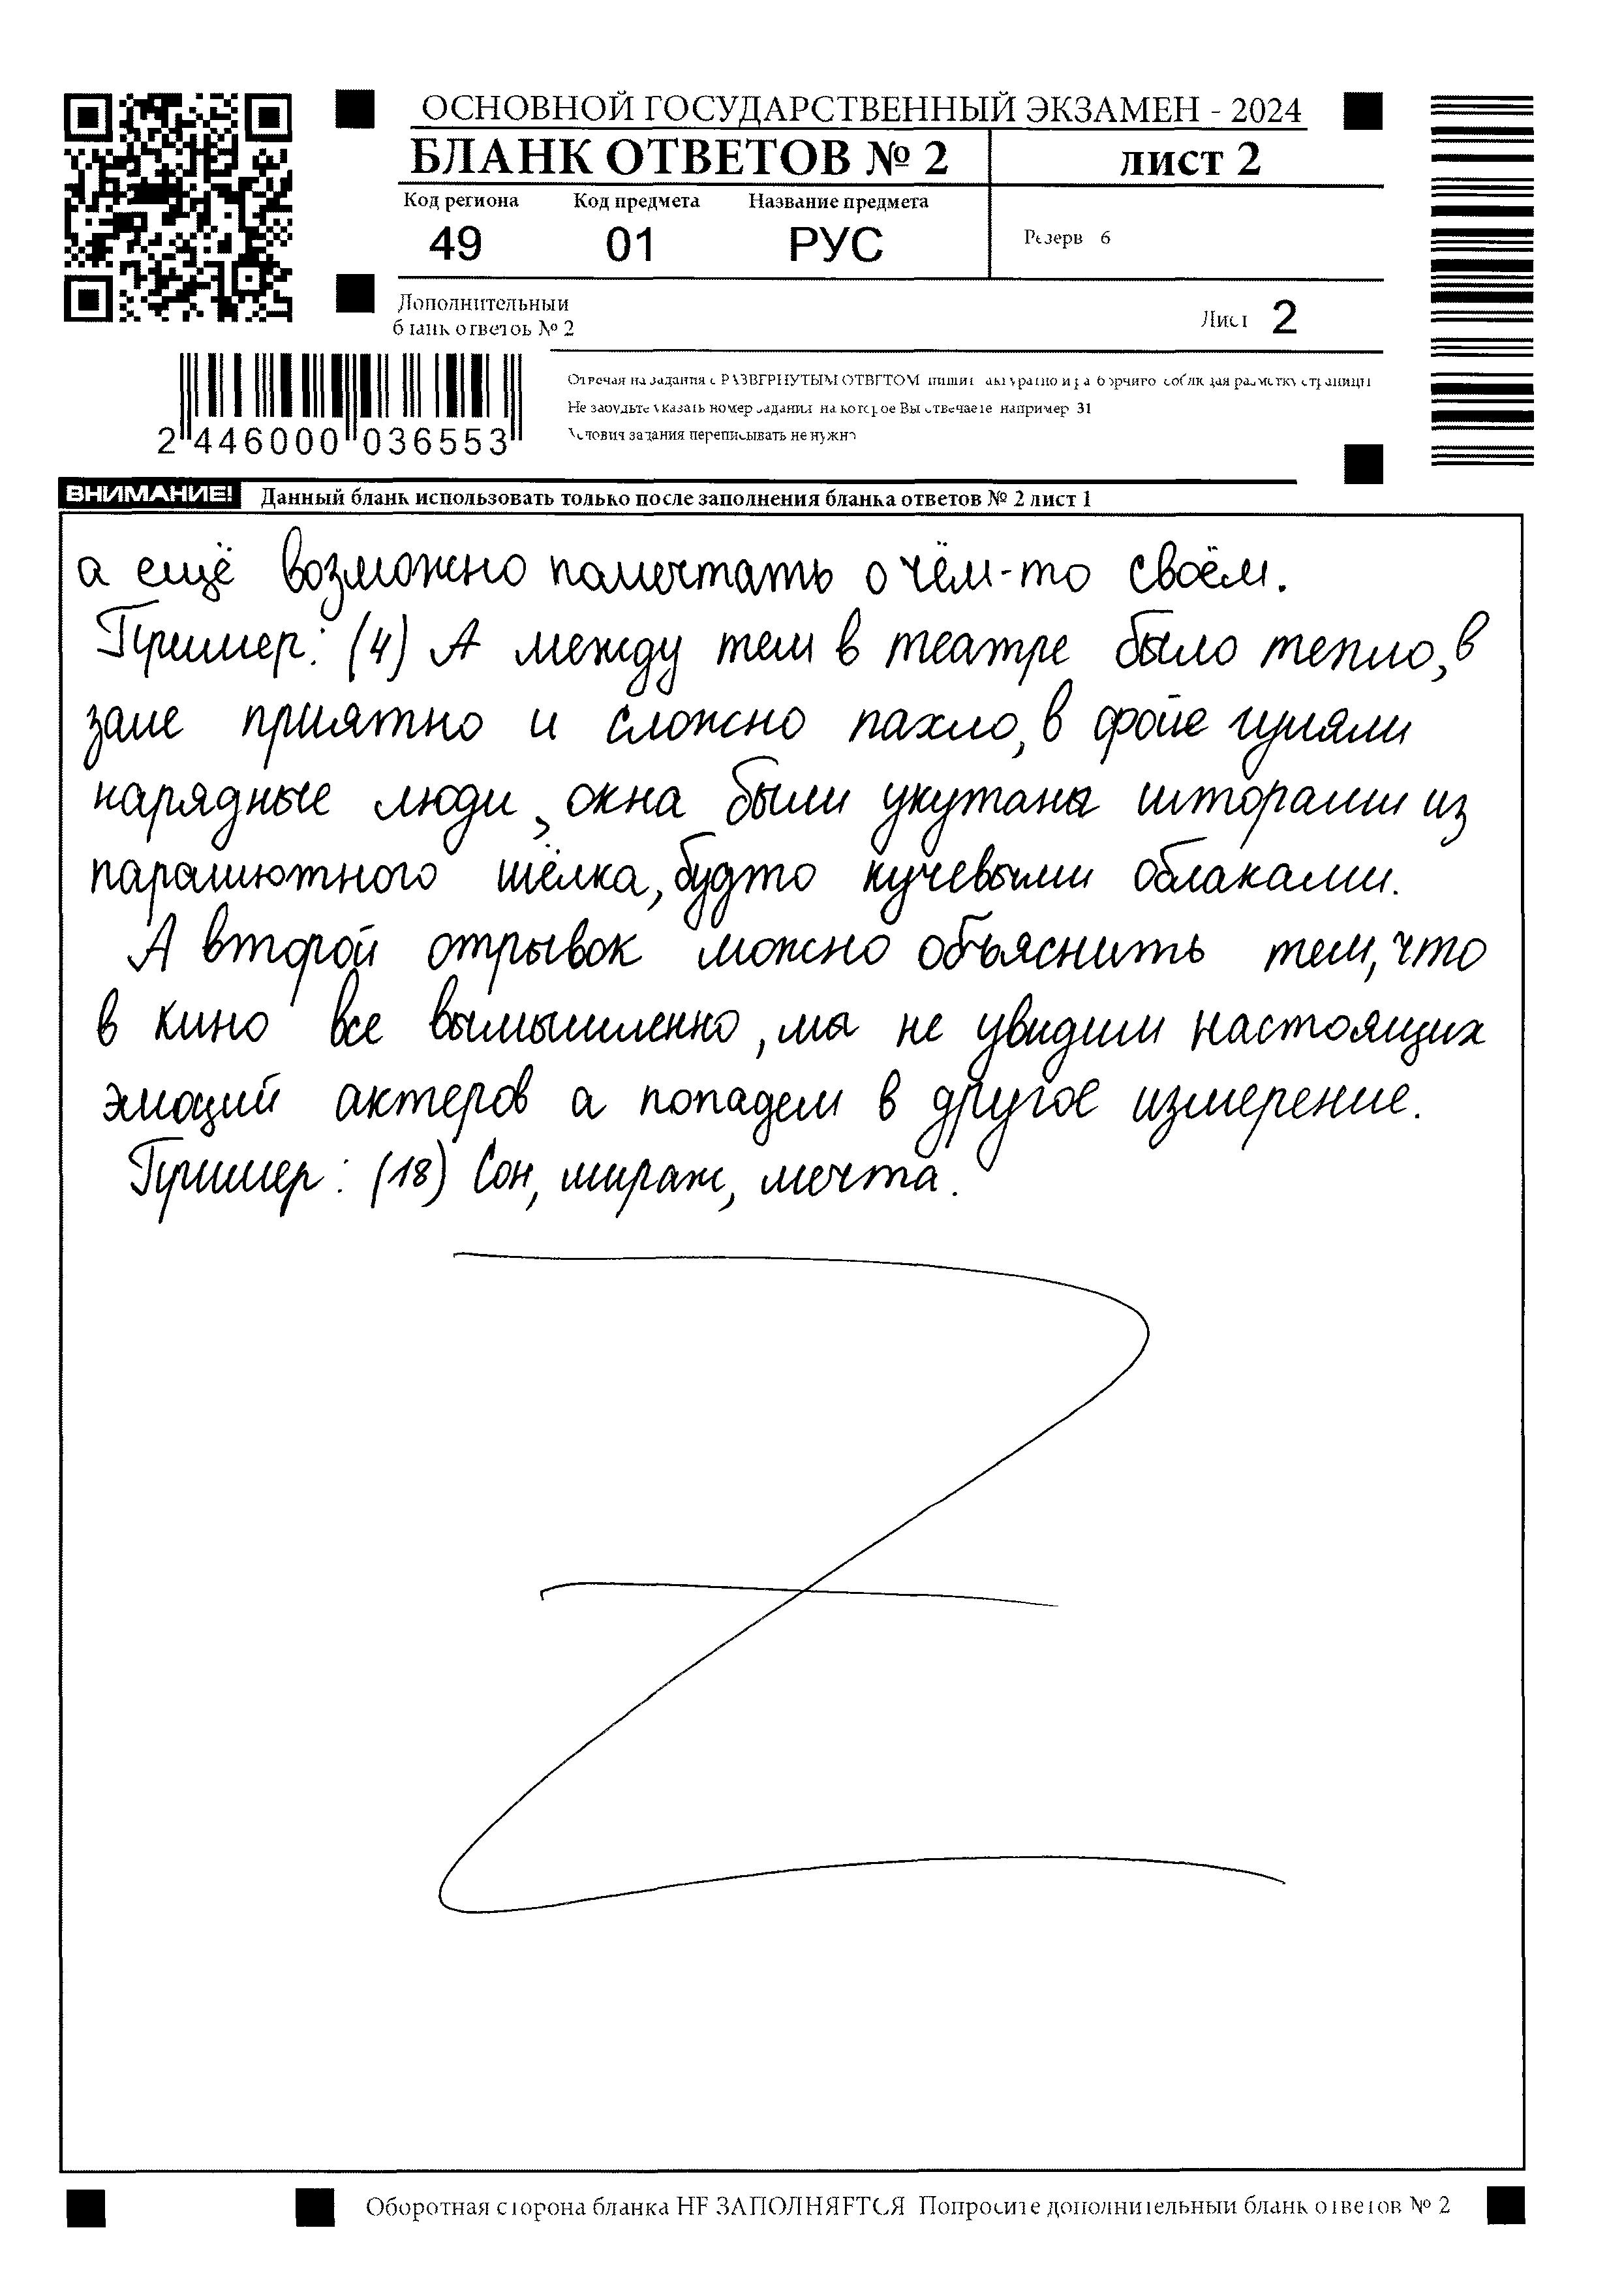 ОСНОВНОЙ ГОСУДАРСТВЕННЫЙ ЭКЗАМЕН - 2024
БЛАНК ОТВЕТОВ № 2
лист 2
Код региона Код предмета Название предмета
49 01 РУС
Резерв 6
Дополнительный
бланк ответов № 2
Лист 2
Отвечая на задания с РАЗВЕРНУТЫМ ОТВЕТОМ пишите аккуратно и разборчиво соблюдая разметку страницы
Не забудьте указать номер задания на которое Вы отвечаете например 31
Условия задания переписывать не нужно
2 446000 036553
ВНИМАНИЕ! Данный бланк использовать только после заполнения бланка ответов № 2 лист 1
а ещё возможно помечтать о чём-то своём.
Пример: (4) А между тем в театре было тепло, в
зале приятно и сложно пахло, в фойе гуляли
нарядные люди, окна были укутаны шторами из
парашютного шёлка, будто кучевыми облаками.
А второй отрывок можно объяснить тем, что
в кино все вымышленно, мы не увидим настоящих
эмоций актеров а попадем в другое измерение.
Пример: (18) Сон, мираж, мечта.
Оборотная сторона бланка НЕ ЗАПОЛНЯЕТСЯ Попросите дополнительный бланк ответов № 2